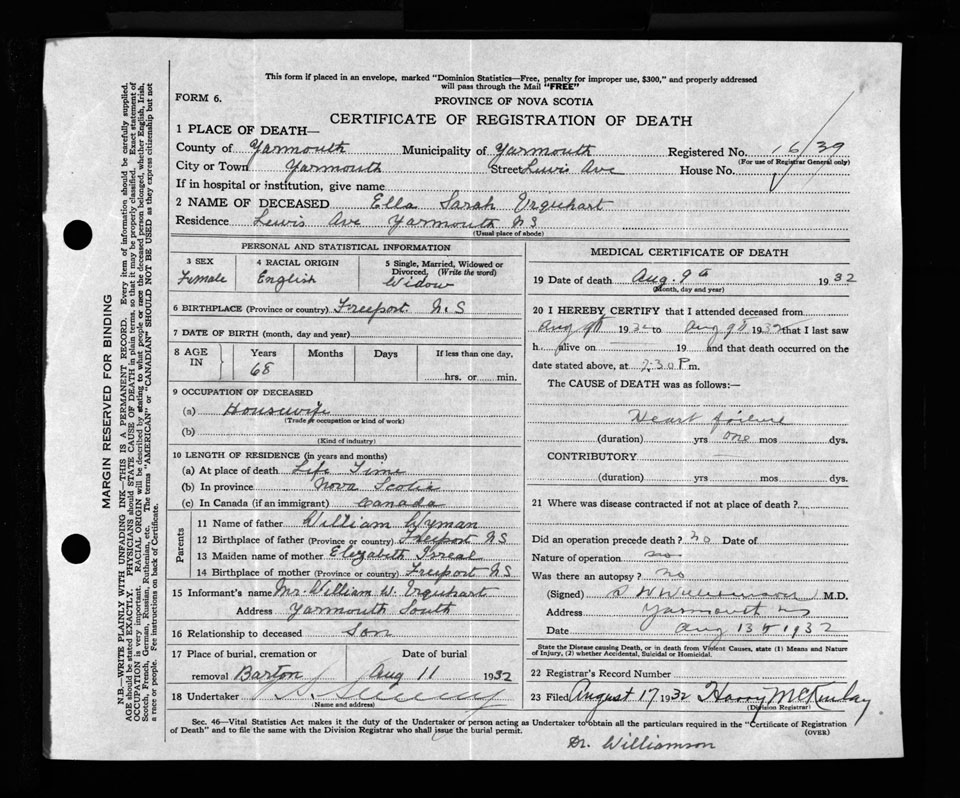 This form if placed in an envelope, marked "Dominion Statistics—Free, penalty for improper use, $300," and properly addressed
will pass through the Mail "FREE"
FORM 6.
PROVINCE OF NOVA SCOTIA
CERTIFICATE OF REGISTRATION OF DEATH
1 PLACE OF DEATH—
County of Yarmouth Municipality of Yarmouth Registered No. 1639
(For use of Registrar General only)
City or Town Yarmouth Street Lewis Ave House No.
If in hospital or institution, give name
2 NAME OF DECEASED Ella Sarah Urquehart
Residence Lewis Ave Yarmouth N S
(Usual place of abode)
PERSONAL AND STATISTICAL INFORMATION
3 SEX 4 RACIAL ORIGIN 5 Single, Married, Widowed or
Divorced, (Write the word)
Female English Widow
6 BIRTHPLACE (Province or country) Freeport N.S
7 DATE OF BIRTH (month, day and year)
8 AGE IN Years Months Days If less than one day,
68
hrs. or min.
9 OCCUPATION OF DECEASED
(a) Housewife
(Trade or occupation or kind of work)
(b)
(Kind of industry)
10 LENGTH OF RESIDENCE (in years and months)
(a) At place of death Life Time
(b) In province Nova Scotia
(c) In Canada (if an immigrant) Canada
Parents
11 Name of father William Wyman
12 Birthplace of father (Province or country) Freeport N S
13 Maiden name of mother Elezabeth
14 Birthplace of mother (Province or country) Freeport N S
15 Informant's name Mr. William W. Urquehart
Address Yarmouth South
16 Relationship to deceased Son
17 Place of burial, cremation or Date of burial
removal Barton Aug 11 1932
18 Undertaker
(Name and address)
MEDICAL CERTIFICATE OF DEATH
19 Date of death Aug. 9th 1932
(Month, day and year)
20 I HEREBY CERTIFY that I attended deceased from
Aug 9th 1932 to Aug 9th 1932 that I last saw
h alive on 19 and that death occurred on the
date stated above, at 7.30 P m.
The CAUSE of DEATH was as follows:—
Heart failure
(duration) yrs one mos dys.
CONTRIBUTORY
(duration) yrs mos dys.
21 Where was disease contracted if not at place of death?
Did an operation precede death? no Date of
Nature of operation no
Was there an autopsy? no
(Signed) Williamson M.D.
Address Yarmouth NS
Date Aug 13th 1932
State the Disease causing Death, or in death from Violent Causes, state (1) Means and Nature
of Injury, (2) whether Accidental, Suicidal or Homicidal.
22 Registrar's Record Number
23 Filed August 17 1932 Harry McKinlay
(Division Registrar)
Sec. 46—Vital Statistics Act makes it the duty of the Undertaker or person acting as Undertaker to obtain all the particulars required in the "Certificate of Registration
of Death" and to file the same with the Division Registrar who shall issue the burial permit.
(OVER)
Dr. Williamson
MARGIN RESERVED FOR BINDING
N.B.—WRITE PLAINLY WITH UNFADING INK—THIS IS A PERMANENT RECORD. Every item of information should be carefully supplied.
AGE should be stated EXACTLY. PHYSICIANS should STATE CAUSE OF DEATH in plain terms, so that it may be properly classified. Exact statement of
OCCUPATION is very important. RACIAL ORIGIN will be described by stating to what people or race the deceased person belonged, whether English, Irish,
Scotch, French, German, Russian, Ruthenian, etc. The terms "AMERICAN" or "CANADIAN" SHOULD NOT BE USED as they express citizenship but not
a race or people. See instructions on back of Certificate.